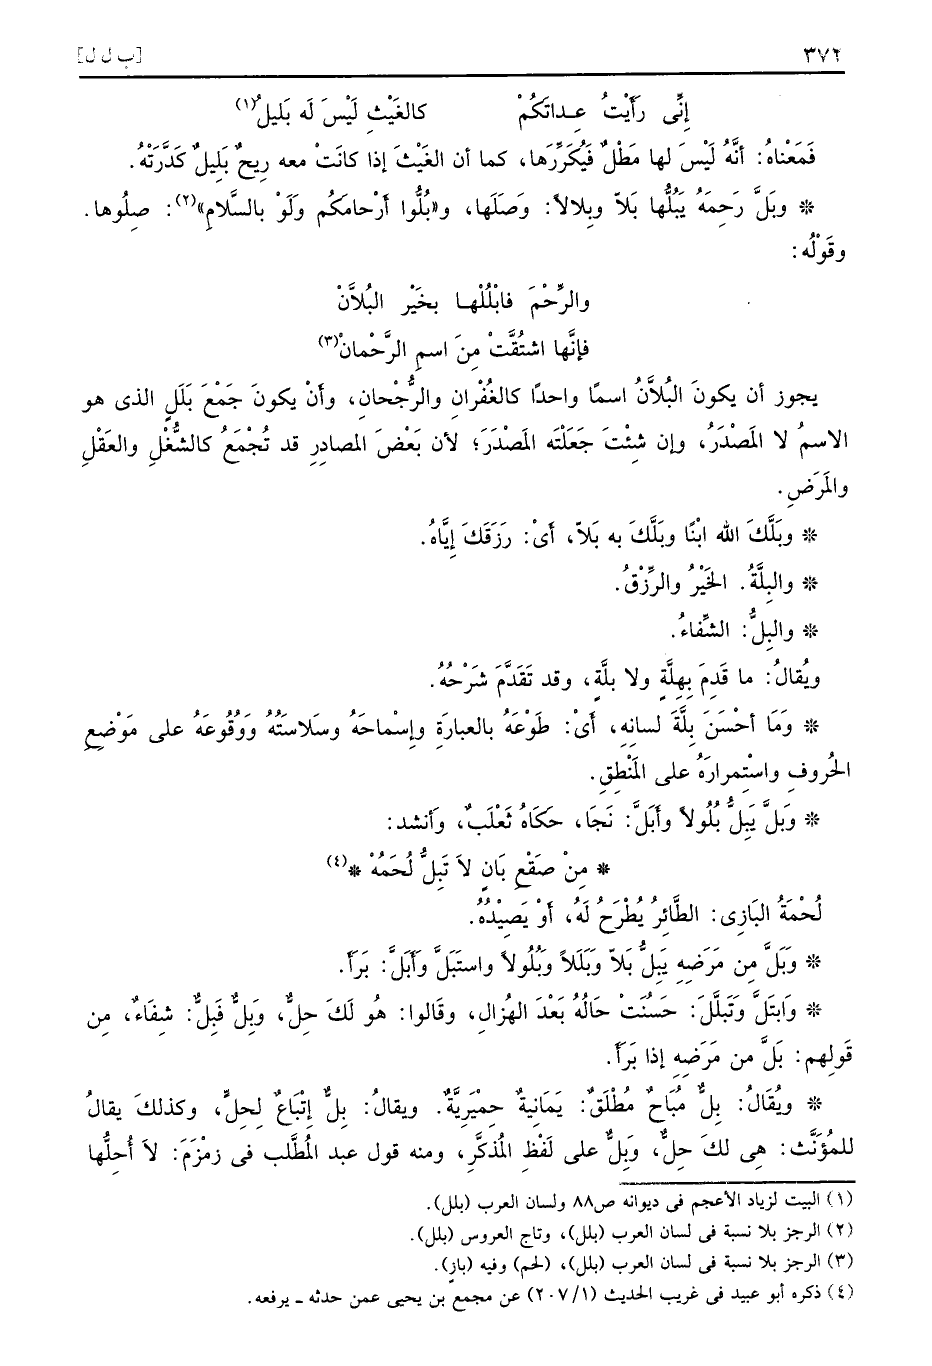 ٣٧٢ [ب ل ل]
إنِّى رَأَيْتُ عِـداتَكُمْ كالغَيْثِ لَيْسَ لَه بَلِيلُ(١)
فَمَعْناهُ: أنَّهُ لَيْسَ لها مَطْلٌ فَيُكَرِّرَها، كما أن الغَيْثَ إذا كانَتْ معه رِيحٌ بَلِيلٌ كَدَّرَتْهُ.
* وبَلَّ رَحِمَهُ يَبُلُّها بَلاّ وبِلالاً: وَصَلَها، و«بُلُّوا أرْحامَكُم وَلَوْ بالسَّلامِ»(٢): صِلُوها.
وقَوْلُه:
والرَّحْمَ فابْلُلْهـا بخَيْرِ البُلاَّنْ
فإنَّها اشتُقَّتْ مِنَ اسمِ الرَّحْمانْ(٣)
يجوز أن يكونَ البُلاَّنُ اسمًا واحدًا كالغُفْرانِ والرُّجْحانِ، وأنْ يكونَ جَمْعَ بَلَلٍ الذى هو
الاسمُ لا المَصْدَرُ، وإن شئْتَ جَعَلْتَه المَصْدَرَ؛ لأن بَعْضَ المصادِرِ قد تُجْمَعُ كالشُّغْلِ والعَقْلِ
والمَرَضِ.
* وبَلَّكَ الله ابْنًا وبَلَّكَ به بَلاّ، أىْ: رَزَقَكَ إيَّاهُ.
* والبِلَّةُ. الخَيْرُ والرِّزْقُ.
* والبِلُّ: الشِّفاءُ.
ويُقالُ: ما قَدِمَ بِهِلَّةٍ ولا بلَّةٍ، وقد تَقَدَّمَ شَرْحُهُ.
* وَمَا أحْسَنَ بِلَّةَ لسانِهِ، أىْ: طَوْعَهُ بالعبارَةِ وإسْماحَهُ وسَلاستَهُ وَوُقُوعَهُ على مَوْضِعِ
الحُروفِ واستْمرارَهُ على المَنْطِقِ.
* وبَلَّ يَبِلُّ بُلُولاً وأبَلَّ: نَجَا، حَكَاهُ ثَعْلَبٌ، وأنشد:
* مِنْ صَقْعِ بَازٍ لاَ تَبِلُّ لُحَمُهْ *(٤)
لُحْمَةُ البَازِى: الطَّائِرُ يُطْرَحُ لَهُ، أوْ يَصِيْدُهُ.
* وَبَلَّ مِن مَرَضِهِ يَبِلُّ بَلاّ وَبَلَلاً وَبُلُولاً واستَبَلَّ وأبَلَّ: بَرَأَ.
* وَابتَلَّ وَتَبلَّلَ: حَسُنَتْ حَالُهُ بَعْدَ الهُزالِ، وقَالوا: هُو لَكَ حِلٌّ، وَبِلٌّ فَبِلٌّ: شفَاءٌ، مِن
قَولهِم: بَلَّ من مَرَضِهِ إذا بَرَأَ.
* ويُقَالُ: بِلٌّ مُبَاحٌ مُطْلَقٌ: يَمَانِيةٌ حِمْيَرِيَّةٌ. ويقالُ: بِلٌّ إتبَاعٌ لحلٍّ، وكذلكَ يقالُ
للمُؤنَّث: هِى لكَ حِلٌّ، وَبِلٌّ على لَفْظِ المُذكَّرِ، ومنه قول عبد المُطَّلب فى زمْزَمَ: لاَ أُحِلُّها
(١) البيت لزياد الأعجم فى ديوانه ص٨٨ ولسان العرب (بلل).
(٢) الرجز بلا نسبة فى لسان العرب (بلل)، وتاج العروس (بلل).
(٣) الرجز بلا نسبة فى لسان العرب (بلل)، (لحم) وفيه (بازٍ).
(٤) ذكره أبو عبيد فى غريب الحديث (٢٠٧/١) عن مجمع بن يحيى عمن حدثه ـ يرفعه.